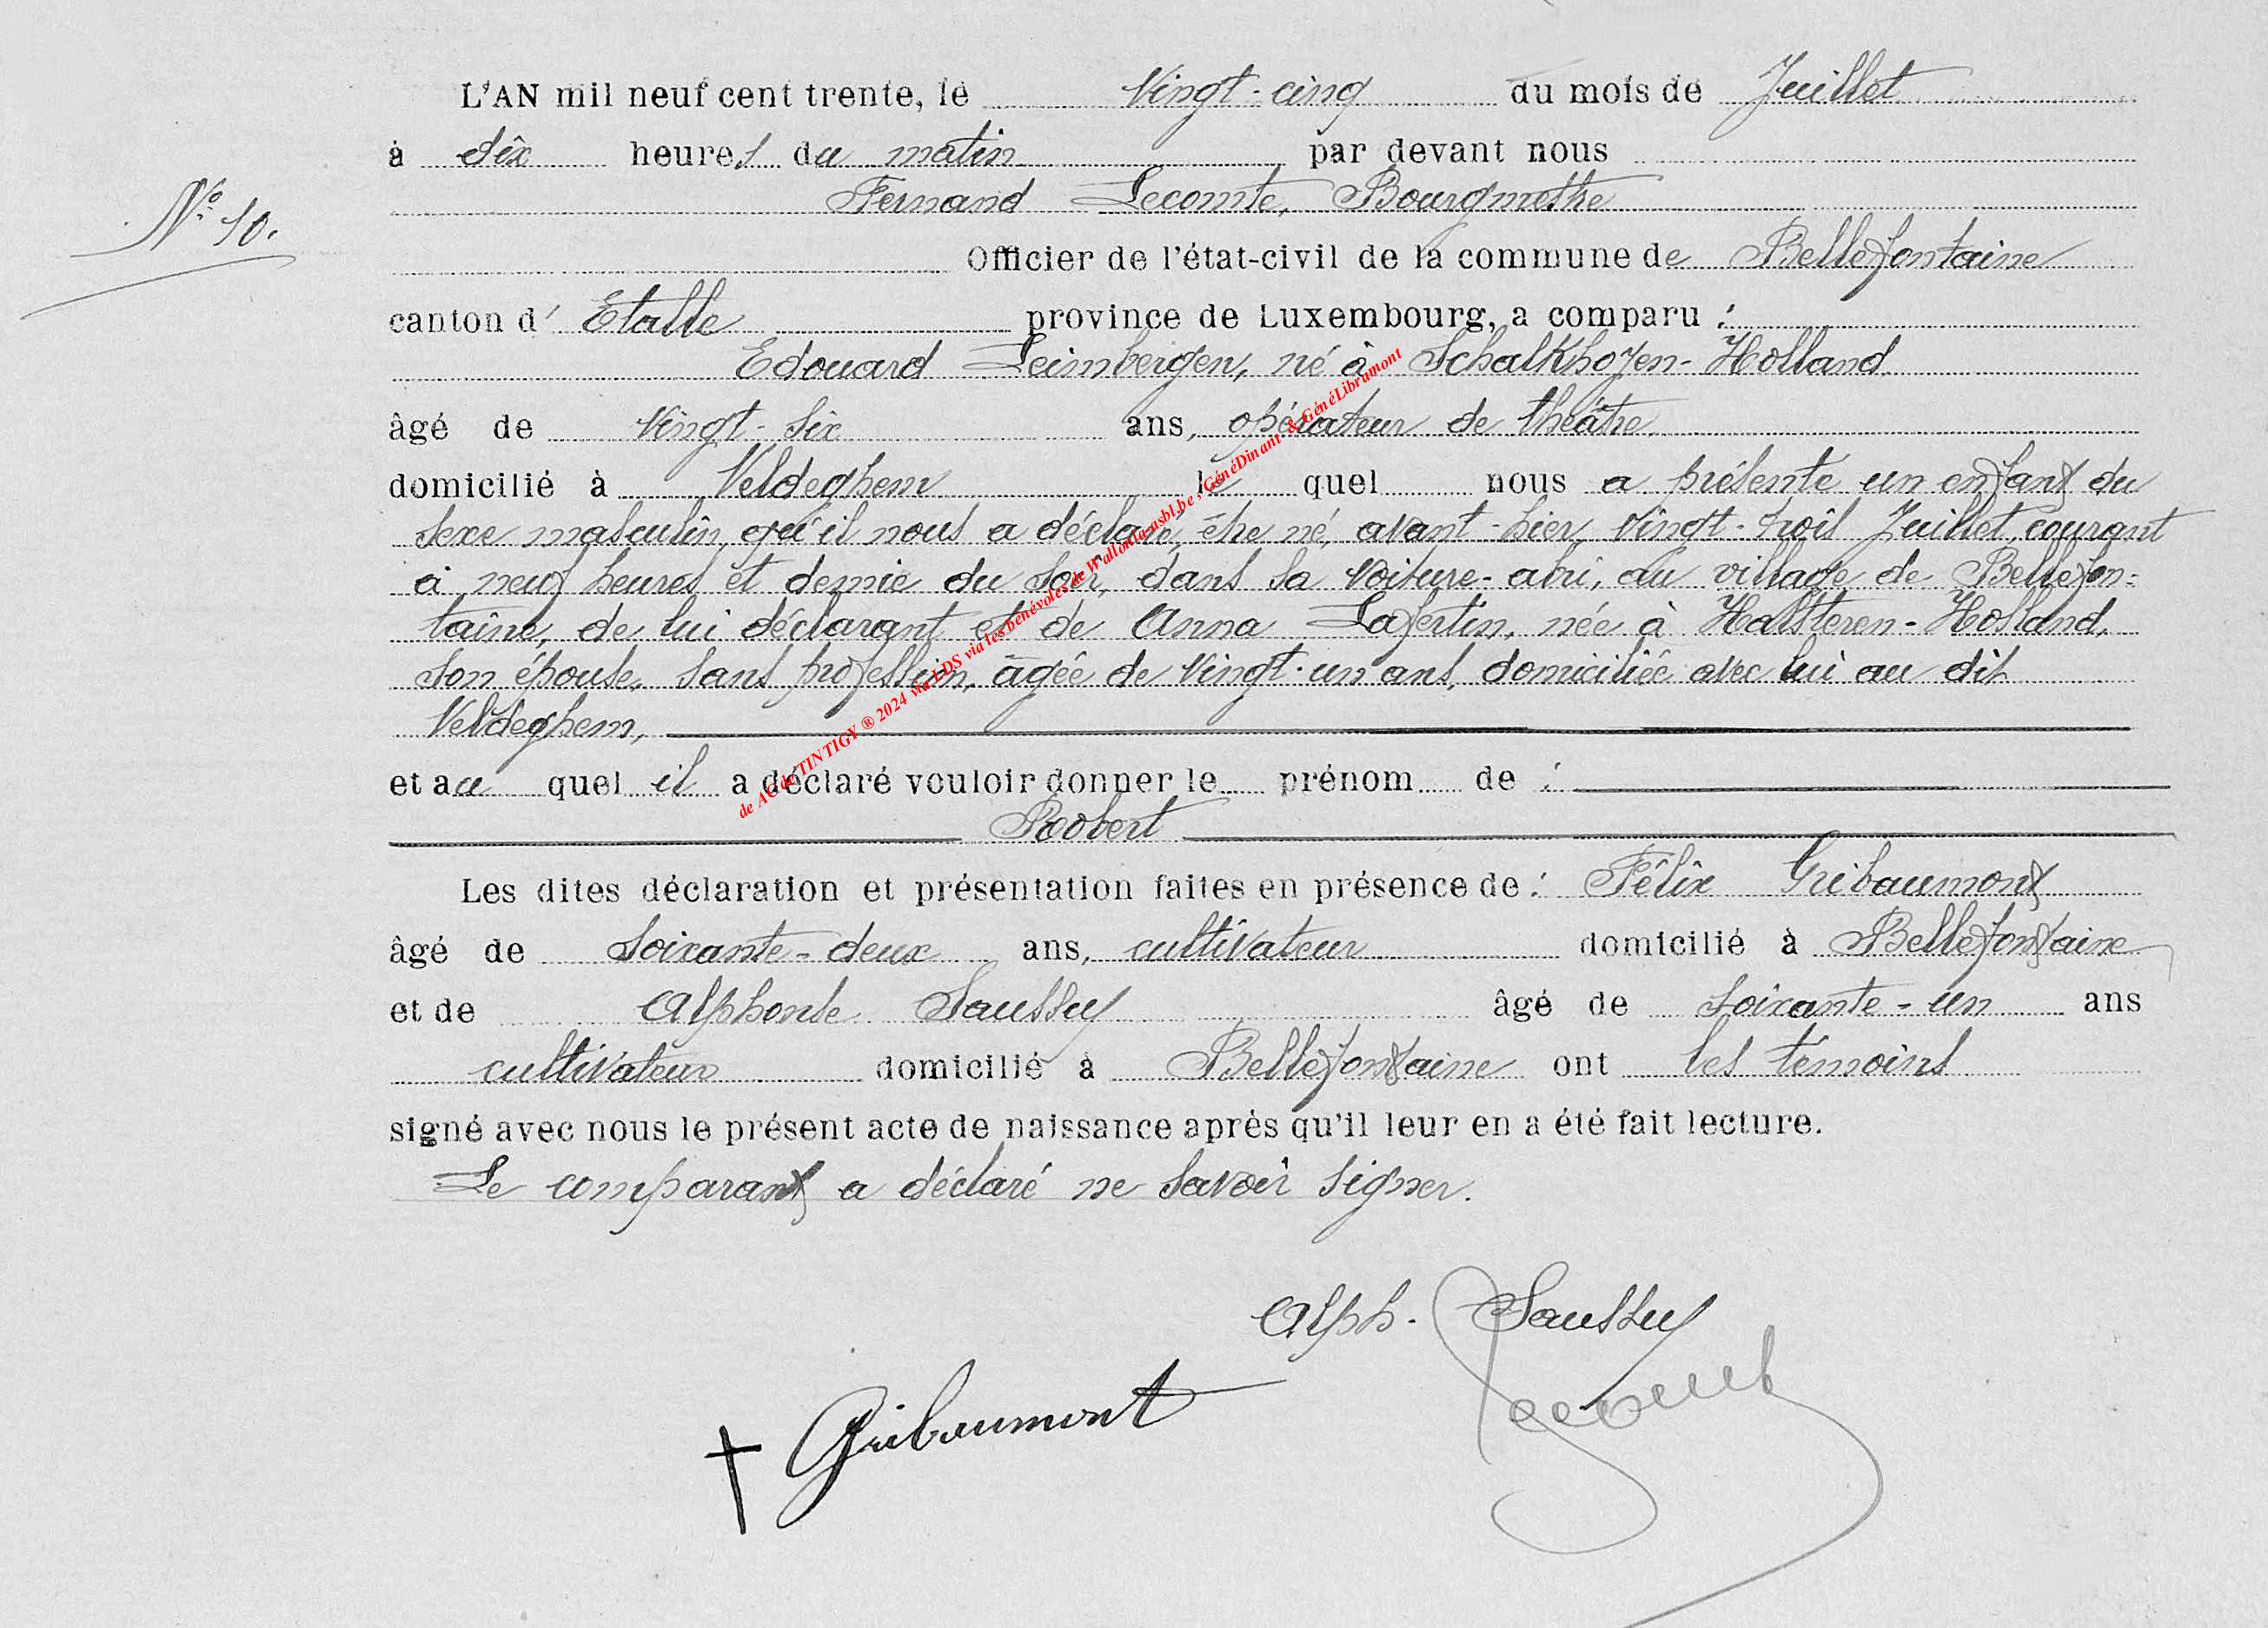 L'AN mil neuf cent trente, le Vingt-cinq du mois de Juillet
à dix heures du matin par devant nous
Fernand Lecomte, Bourgmestre
N° 10.
Officier de l'état-civil de la commune de Bellefontaine
canton d' Etalle province de Luxembourg, a comparu :
Edouard Leimbergen, né à Schalkhozen-Holland
âgé de Vingt-six ans, opérateur de théâtre,
domicilié à Veldeghem le quel nous a présenté un enfant du
sexe masculin, qu'il nous a déclaré, être né, avant-hier, Vingt-trois Juillet, courant
à neuf heures et demie du soir, dans sa voiture-abri, au village de Bellefon-
taine, de lui déclarant et de Anna Lafertin, née à Halsteren-Holland,
son épouse, sans profession, âgée de Vingt-un ans, domiciliée avec lui au dit
Veldeghem,
et au quel il a déclaré vouloir donner le prénom de :
Robert
Les dites déclaration et présentation faites en présence de : Félix Gribaumont
âgé de soixante-deux ans, cultivateur domicilié à Bellefontaine
et de Alphonse Saussey âgé de soixante-un ans
cultivateur domicilié à Bellefontaine ont les témoins
signé avec nous le présent acte de naissance après qu'il leur en a été fait lecture.
Le comparant a déclaré ne savoir signer.
Alph. Saussey
Lecomte
† Gribaumont
de AC de TINTIGY ® 2024 via LDS via les bénévoles de Wallonia asbl.be , GénéDinant & GénéLibramont